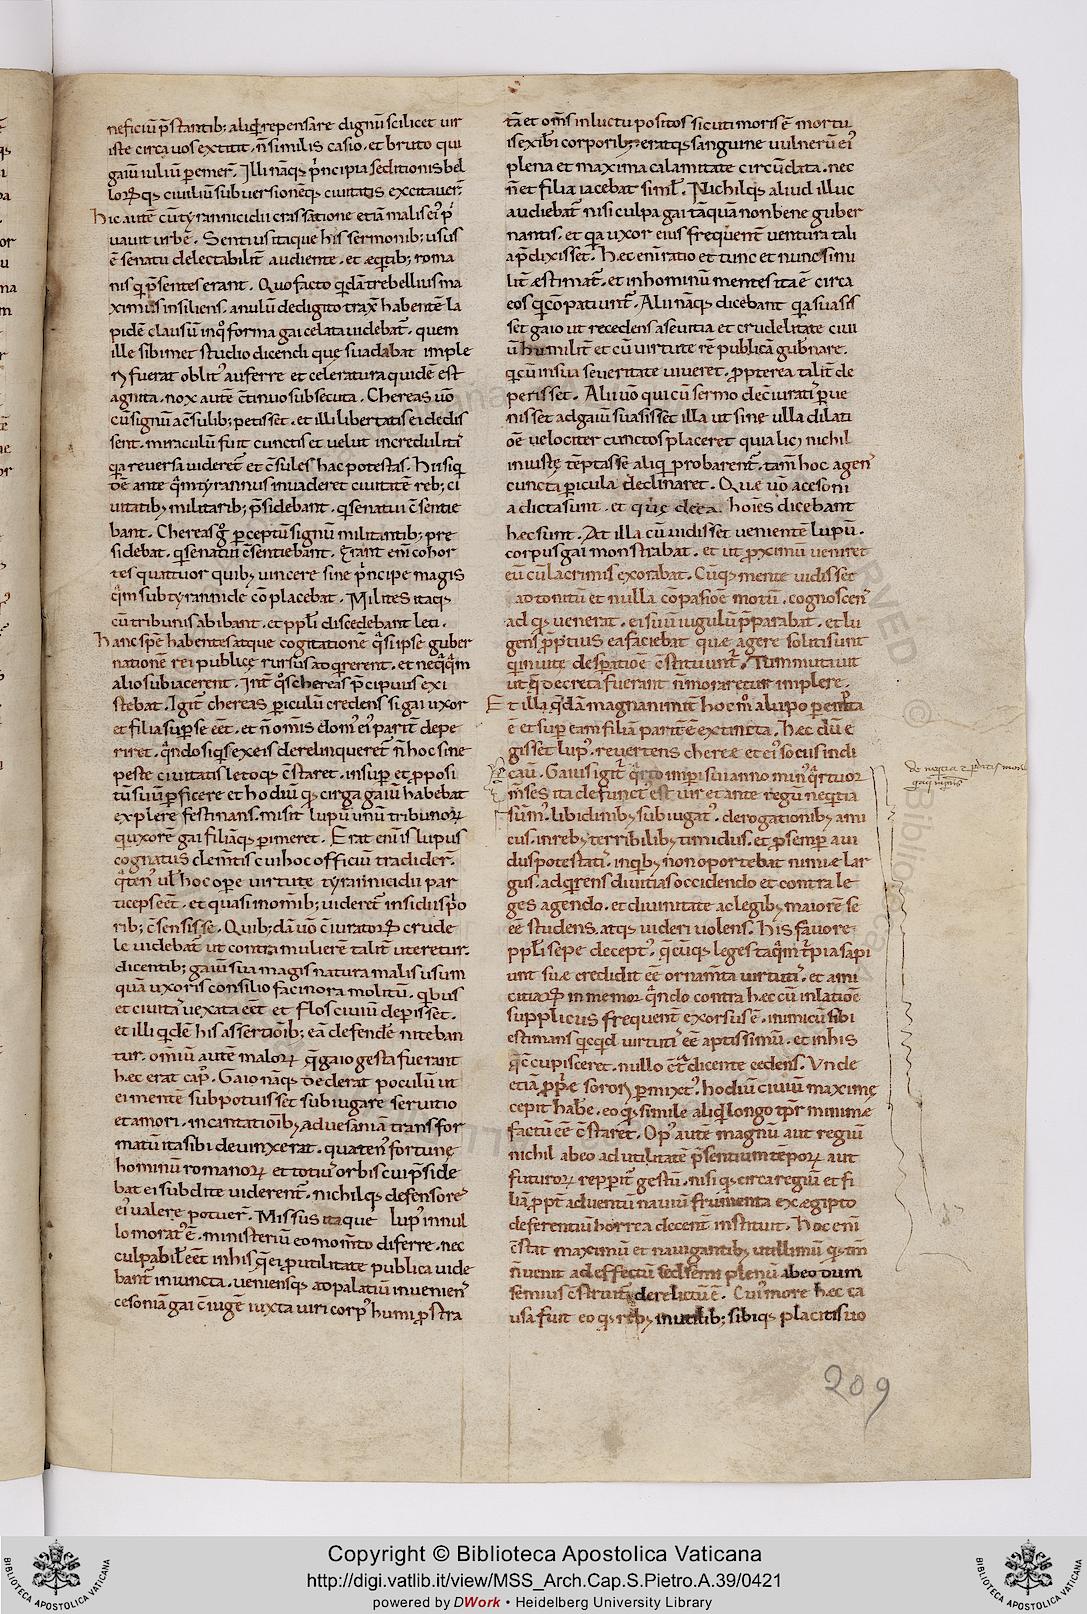 neficiū p̄stantib; aliq̇d repensare dignū scilicet uir
iste circa uos extitit, n̄ similis casio, et bruto qui
gaiū iuliū perimer̄. Illi nāq; p̄ncipia seditionis bel
loꝝq; ciuiliū subuersionēq; ciuitatis excitauer̄
hic autē cū tyrannicidii crassatione etiā malis ei᷒ p̄
uauit urbē. Sentius itaque his sermonib; usus
ē senatu delectabilit̄ audiente, et eq̇tib; roma
nis qui p̄sentes erant. Quo facto q̇dā trebellius ma
ximus insiliens, anulū de digito trax̄ habentē la
pidē clausū in quo forma gai celata uidebat̄, quem
ille sibimet studio dicendi que suadabat imple
ri fuerat oblit᷒ auferre et celeratura quidē est
agnita, nox autē c̄tinuo subsecuta. Chereas uō
cū signū a c̄sulib; petisset, et illi libertatis ei dedis
sent, miraculū fuit cunctis et uelut incredulitī
q̇a reuersa uideret̄ et c̄sules hac potestas. Hii siq̇
dē ante q̇m tyrannus inuaderet ciuitatē reb; ci
uitatib; militarib; p̄sidebant, q̇ senatui c̄sentie
bant. Chereas g̊ perceptū signū militantib; pre
sidebat, q̇ senatui c̄sentiebant. Erant enī cohor
tes quattuor quib; uincere sine p̄ncipe magis
q̇m sub tyrannide cōplacebat. Milites itaq;
cū tribunis abibant, et ppl̄i discedebant leti.
hanc spē habentes atque cogitationē q̇ sipse guber
nationē rei publicę rursus adq̇rerent, et neq̇q̇m
alio subiacerent. Int̄ q̊s chereas p̄cipuus exi
stebat. Igit̄ chereas periculū credens si gai uxor
et filia sup̄se eēt, et n̄ om̄is dom᷒ ei᷒ parit̄ depe
riret, q̇ndo siq̇s ex eis derelinqueret̄ n̄ hoc sine
peste ciuitatis letoq; c̄staret, insup̄ et p̄posi
tū suū p̄ficere et hodiū q̇ cirga gaiū habebat
explere festinans, misit lupū unū tribunoꝝ
q̇ uxorē gai filiāq; perimeret. Erat enī is lupus
cognatus clem̄tis cui hoc officiū tradider̄,
q̇ten᷒ ul̄ hoc ope uirtute tyrannicidii par
ticeps eēt, et quasi in om̄ib; uideret̄ insidiis p̄o
rib; c̄sensisse. Quib; dā uō c̄iuratoꝝ crude
le uidebat̄ ut contra mulierē talit̄ uteretur,
dicentib; gaiū sua magis natura malis usum
quā uxoris consilio facinora molitū, q̇bus
et ciuitas uexata eēt et flos ciuiū depisset,
et illi q̇dē his assertiōib; eā defende niteban
tur, omiū autē maloꝝ q̇ gaio gesta fuerant
hęc erat cap᷒. Gaio nāq; dederat poculū ut
ei mente sub potuisset subiugare seruitio
et amori, incantatiōib; ad uesaniā transfor
matū ita sibi deuinxerat, quaten᷒ fortunę
hominū romanoꝝ et toti᷒ orbis cui p̄side
bat ei subdite uiderent̄, nichilq; defensorē
ei᷒ ualere potuer̄. Missus itaque lup᷒ in nul
lo morat᷒ ē, ministeriū eo momto diferre, nec
culpabil̄ eēt in his q̇ ei putilitate publica uide
bant̄ iniuncta, ueniensq; ad palatiū inuenien᷒
cesoniā gai c̄iugē iuxta uiri corp᷒ humi p̄stra
tā et om̄s in luctu positos sicuti moris ē mortu
is exib̄i corporib; eratq; sanguine uulnerū ei᷒
plena et maxima calamitate circūdata, nec
n̄ et filia iacebat simł. Nichilq; aliud illuc
audiebat̄ nisi culpa gai tāquā non bene guber
nantis, et q̇a uxor eius frequent̄ uentura tali
a p̄dixisset. Hęc enī ratio et tunc et nunc simi
lit̄ estimat̄, et in hominū mentes ita ē circa
eos q̇ cōpatiunt̄. Alii nāq; dicebant q̇a suasis
set gaio ut recedens a seuitia et crudelitate ciui
ū humilit̄ et cū uirtute rē publicā gub̄nare,
q̇ cū in sua seueritate uiueret, p̄pterea talit̄ de
perisset. Alii uō qui cū sermo de c̄iurati p̄ue
nisset ad gaiū suasisset illa ut sine ulla dilati
oē uelociter cunctos placeret quia lic; nichil
iniustę tēptasse aliq̇ probarent̄, tam̄ hoc agen᷒
cuncta pericula declinaret. Quę uō a cesoni
a dicta sunt, et quę de ea hoīes dicebant
hęc sunt. At illa cū uidisset uenientē lupū,
corpus gai monstrabat, et ut p̄ximū ueniret
eū cū lacrimis exorabat. Cūq; mente uidisset
adtonitū et nulla cōpasioē motū, cognoscen᷒
ad q̇ uenerat, ei suū iugulū p̄parabat, et lu
gens p̄ptius ea faciebat quę agere soliti sunt
q̇ in uite desperatioē c̄stituunt̄. Tum mutauit
ut q̇ decreta fuerant n̄ moraretur implere.
Et illa q̇dā magnanimit̄ hoc m̊ a lupo perēpta
ē et super eam filia parit̄ ē extincta. Hęc dū ē
gisset lup᷒, reuertens cheree et ei᷒ sociis indi
cau̅. Gaius igit̄ q̇rto imp̄ii sui anno min᷒ q̇rtuor
m̄ses ita defunct᷒ est uir et ante regnū neq̇tia
sūm᷒, libidinib; subiugat᷒, derogationib; ami
cus, in reb; terribilib; timidus, et p̄ semp̄ aui
dus potestati᷒, in q̇b; non oportebat nimię lar
gus, adq̇rens diuitias occidendo et contra le
ges agendo, et diuinitate ac legib; maiorē se
eē studens, atq; uideri uolens. His fauore
ppl̄i sepe decept᷒, q̇eūq; leges taq̇m t̄pia sapi
unt suę credidit eē ornam̄ta uirtuti᷒, et ami
citiaꝝ inmemor q̇ndo contra hęc cū inlatioē
supplicius frequent̄ exorsus ē, inimicū sibi
estimans q̇cq̇d uirtuti᷒ eē aptissimū, et in his
q̇ c̄cupisceret, nullo c̄t̄dicente cedens. Vnde
etiā p̄p̄e soror̄ permixt᷒, hodiū ciuiū maximę
cepit habē, eo q̇ simile aliq̇d longo tp̄r minimę
factū eē c̄staret. Op᷒ autē magnū aut regiū
nichil ab eo ad utilitatē p̄sentium tēpoꝝ aut
futuroꝝ repperit̄ gestū, nisi q̇ circa regiū et si
liā p̄pt̄ aduentū nauiū frum̄enta ex ęgipto
deferentiū horrea decent̄ instituit. Hoc enī
c̄stat maximū et nauigantib; utillimū q̇ tm̄
n̄ uenit ad effectū sed semi plenū ab eo dum
semius c̄struit᷒ derelictū ē. Cui᷒ more hęc ca
usa fuit eo q̇ reb; inutilib; sibiq; placitis uo
de neq̇tia
gaii
209
Copyright © Biblioteca Apostolica Vaticana
http://digi.vatlib.it/view/MSS_Arch.Cap.S.Pietro.A.39/0421
powered by DWork • Heidelberg University Library
BIBLIOTECA APOSTOLICA VATICANA
BIBLIOTECA APOSTOLICA VATICANA